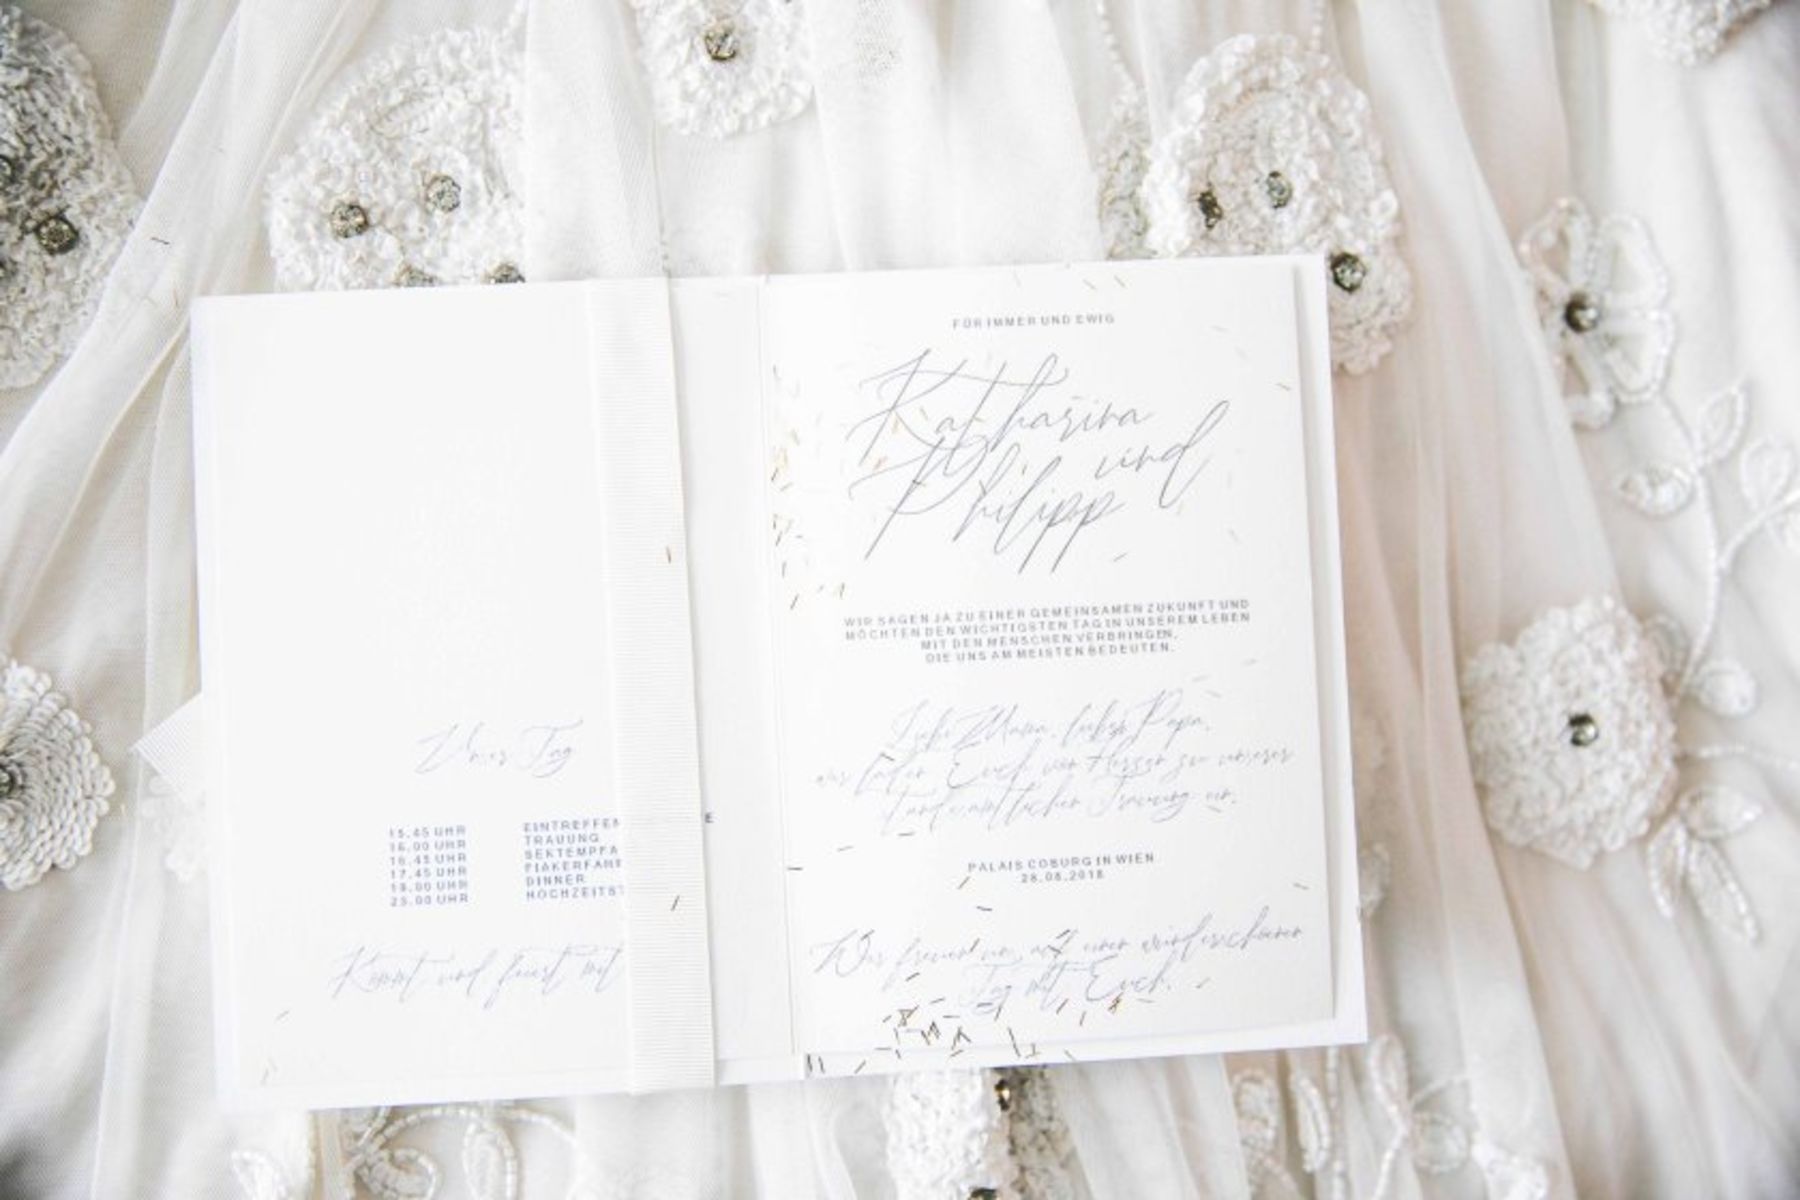 Unser Tag
15.45 UHR EINTREFFEN
16.00 UHR TRAUUNG
16.45 UHR SEKTEMPFA E
17.45 UHR FIAKERFAHR
19.00 UHR DINNER
23.00 UHR HOCHZEITST
Kommt und feiert mit
FÜR IMMER UND EWIG
Katharina
und
Philipp
WIR SAGEN JA ZU EINER GEMEINSAMEN ZUKUNFT UND
MÖCHTEN DEN WICHTIGSTEN TAG IN UNSEREM LEBEN
MIT DEN MENSCHEN VERBRINGEN,
DIE UNS AM MEISTEN BEDEUTEN.
Liebe Mama, lieber Papa,
wir laden Euch von Herzen zu unserer
standesamtlichen Trauung ein.
PALAIS COBURG IN WIEN
28.08.2018
Wir freuen uns auf einen wunderschönen
Tag mit Euch.